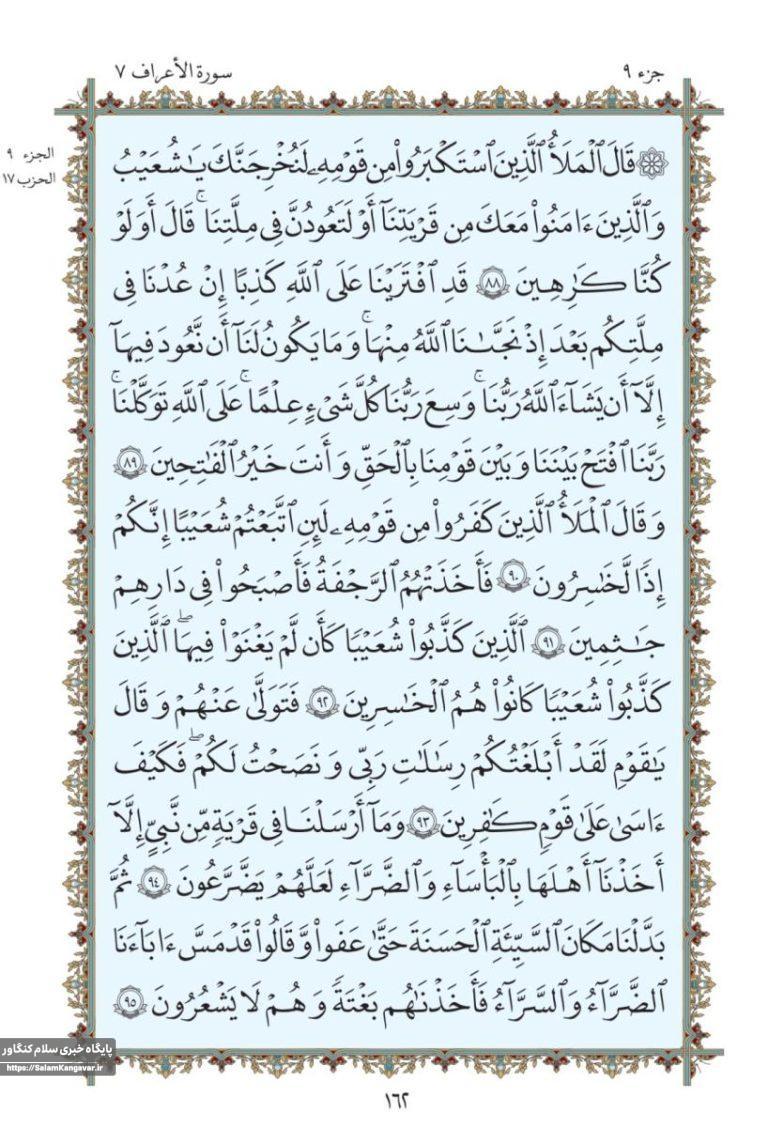 جزء ۹
سورة الأعراف ۷
الجزء ۹
الحزب ۱۷
۞ قَالَ ٱلْمَلَأُ ٱلَّذِينَ ٱسْتَكْبَرُوا۟ مِن قَوْمِهِۦ لَنُخْرِجَنَّكَ يَٰشُعَيْبُ
وَٱلَّذِينَ ءَامَنُوا۟ مَعَكَ مِن قَرْيَتِنَآ أَوْ لَتَعُودُنَّ فِى مِلَّتِنَا ۚ قَالَ أَوَلَوْ
كُنَّا كَٰرِهِينَ ۸۸ قَدِ ٱفْتَرَيْنَا عَلَى ٱللَّهِ كَذِبًا إِنْ عُدْنَا فِى
مِلَّتِكُم بَعْدَ إِذْ نَجَّىٰنَا ٱللَّهُ مِنْهَا ۚ وَمَا يَكُونُ لَنَآ أَن نَّعُودَ فِيهَآ
إِلَّآ أَن يَشَآءَ ٱللَّهُ رَبُّنَا ۚ وَسِعَ رَبُّنَا كُلَّ شَىْءٍ عِلْمًا ۚ عَلَى ٱللَّهِ تَوَكَّلْنَا ۚ
رَبَّنَا ٱفْتَحْ بَيْنَنَا وَبَيْنَ قَوْمِنَا بِٱلْحَقِّ وَأَنتَ خَيْرُ ٱلْفَٰتِحِينَ ۸۹
وَقَالَ ٱلْمَلَأُ ٱلَّذِينَ كَفَرُوا۟ مِن قَوْمِهِۦ لَئِنِ ٱتَّبَعْتُمْ شُعَيْبًا إِنَّكُمْ
إِذًا لَّخَٰسِرُونَ ۹۰ فَأَخَذَتْهُمُ ٱلرَّجْفَةُ فَأَصْبَحُوا۟ فِى دَارِهِمْ
جَٰثِمِينَ ۹۱ ٱلَّذِينَ كَذَّبُوا۟ شُعَيْبًا كَأَن لَّمْ يَغْنَوْا۟ فِيهَا ۖ ٱلَّذِينَ
كَذَّبُوا۟ شُعَيْبًا كَانُوا۟ هُمُ ٱلْخَٰسِرِينَ ۹۲ فَتَوَلَّىٰ عَنْهُمْ وَقَالَ
يَٰقَوْمِ لَقَدْ أَبْلَغْتُكُمْ رِسَٰلَٰتِ رَبِّى وَنَصَحْتُ لَكُمْ ۖ فَكَيْفَ
ءَاسَىٰ عَلَىٰ قَوْمٍ كَٰفِرِينَ ۹۳ وَمَآ أَرْسَلْنَا فِى قَرْيَةٍ مِّن نَّبِىٍّ إِلَّآ
أَخَذْنَآ أَهْلَهَا بِٱلْبَأْسَآءِ وَٱلضَّرَّآءِ لَعَلَّهُمْ يَضَّرَّعُونَ ۹۴ ثُمَّ
بَدَّلْنَا مَكَانَ ٱلسَّيِّئَةِ ٱلْحَسَنَةَ حَتَّىٰ عَفَوا۟ وَّقَالُوا۟ قَدْ مَسَّ ءَابَآءَنَا
ٱلضَّرَّآءُ وَٱلسَّرَّآءُ فَأَخَذْنَٰهُم بَغْتَةً وَهُمْ لَا يَشْعُرُونَ ۹۵
پایگاه خبری سلام کنگاور
https://SalamKangavar.ir
۱۶۲